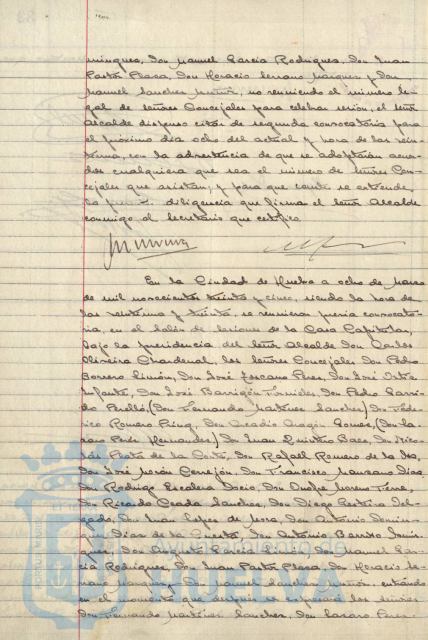 mínguez, Don Manuel García Rodríguez, Don Juan
Pastor Plaza, Don Horacio Serrano Marquez y Don
Manuel Sanchez Muñoz, no reuniendo el número le-
gal de señores Concejales para celebrar sesión, el señor
Alcalde dispuso citar de segunda convocatoria para
el próximo día ocho del actual y hora de las vein-
tiuna, con la advertencia de que se adoptarán acuer-
dos cualquiera que sea el número de señores Con-
cejales que asistan; y para que conste se extiende
la diligencia que firma el señor Alcalde
conmigo el Secretario que certifico
En la Ciudad de Huelva a ocho de Marzo
de mil novecientos treinta y cinco, siendo la hora de
las veintiuna y treinta, se reunieron previa convocato-
ria, en el Salón de Sesiones de la Casa Capitular,
bajo la presidencia del señor Alcalde Don Carlos
Oliveira Chardenal, los señores Concejales Don Pedro
Borrero Limón, Don José Toscano Perez, Don José Ortiz
Infante, Don José Barrigón Don Pedro Garri-
do Perelló, (Don Fernando Martínez Sanchez) Don Fede-
rico Romero Don Aragón Gomez, (Don La-
zaro Perez Hernandez) Don Juan Quintero Baez, Don Nico-
lás de la Corte, Don Rafael Romero de la
Don José Morón Cerrejón, Don Francisco Manzano Diaz,
Don Rodrigo Escalera Don Onofre Moreno
Don Ricardo Ceada Sanchez, Don Diego Del-
gado, Don Juan Lopez de Mora, Don Antonio Domin-
guez Diaz de la Don Antonio Barroso Domin-
guez, Don Augusto García Don Manuel Gar-
cía Rodríguez, Don Juan Pastor Plaza, Don Horacio Se-
rrano Marquez y Don Manuel Sanchez Muñoz, entrando
en el momento que después se expresará los señores
Don Fernando Martínez Sanchez, Don Lazaro Perez